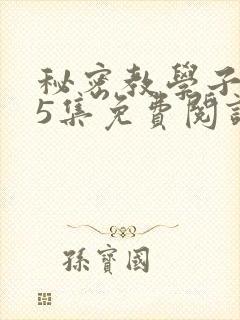 秘密教學子
5集免費閱讀
孫寶國